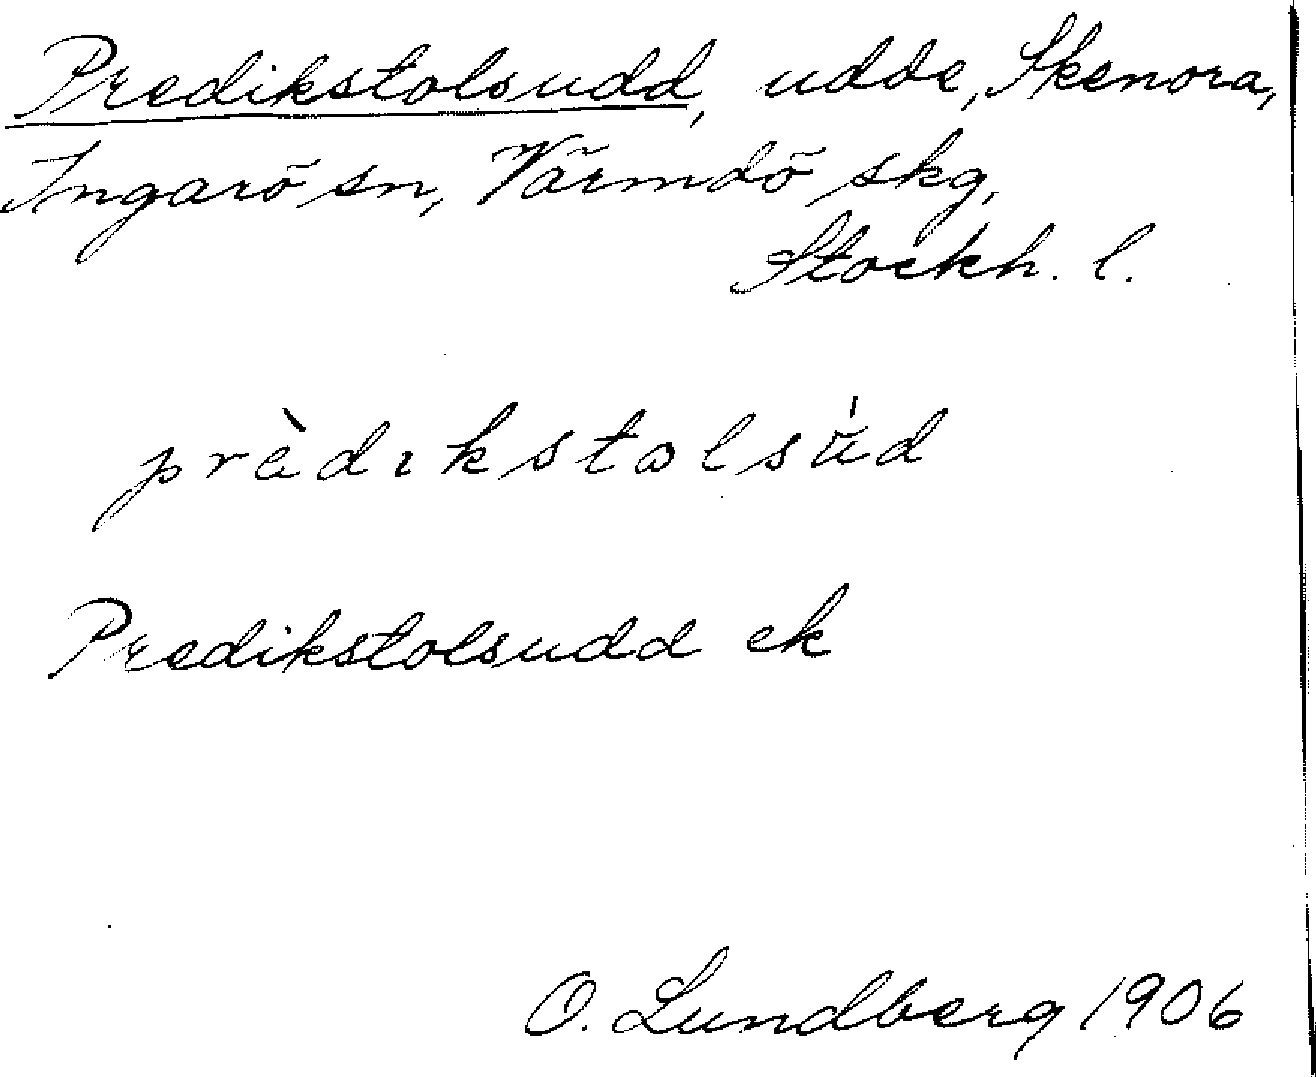 Predikstolsudd, udde, Skenora,
Ingarö sn, Värmdö skg,
Stockh. l.
prèdıkstolsu̇̈́d
Predikstolsudd ek
O. Lundberg 1906